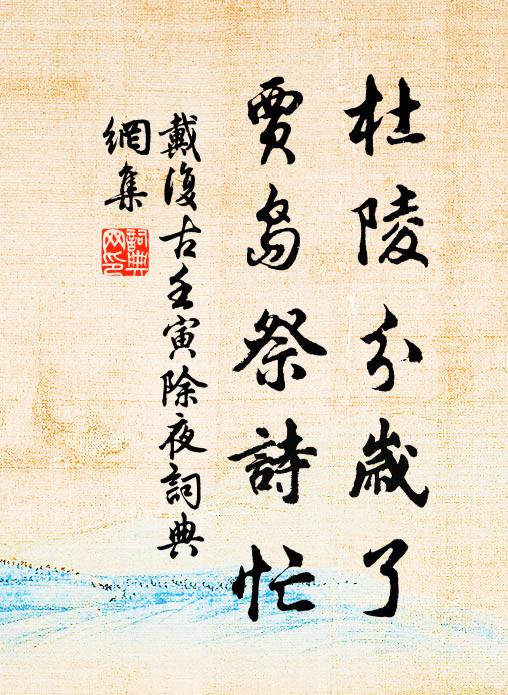 杜陵分歲了
賈島祭詩忙
戴復古壬寅除夜詞典
網集
詞典
网印